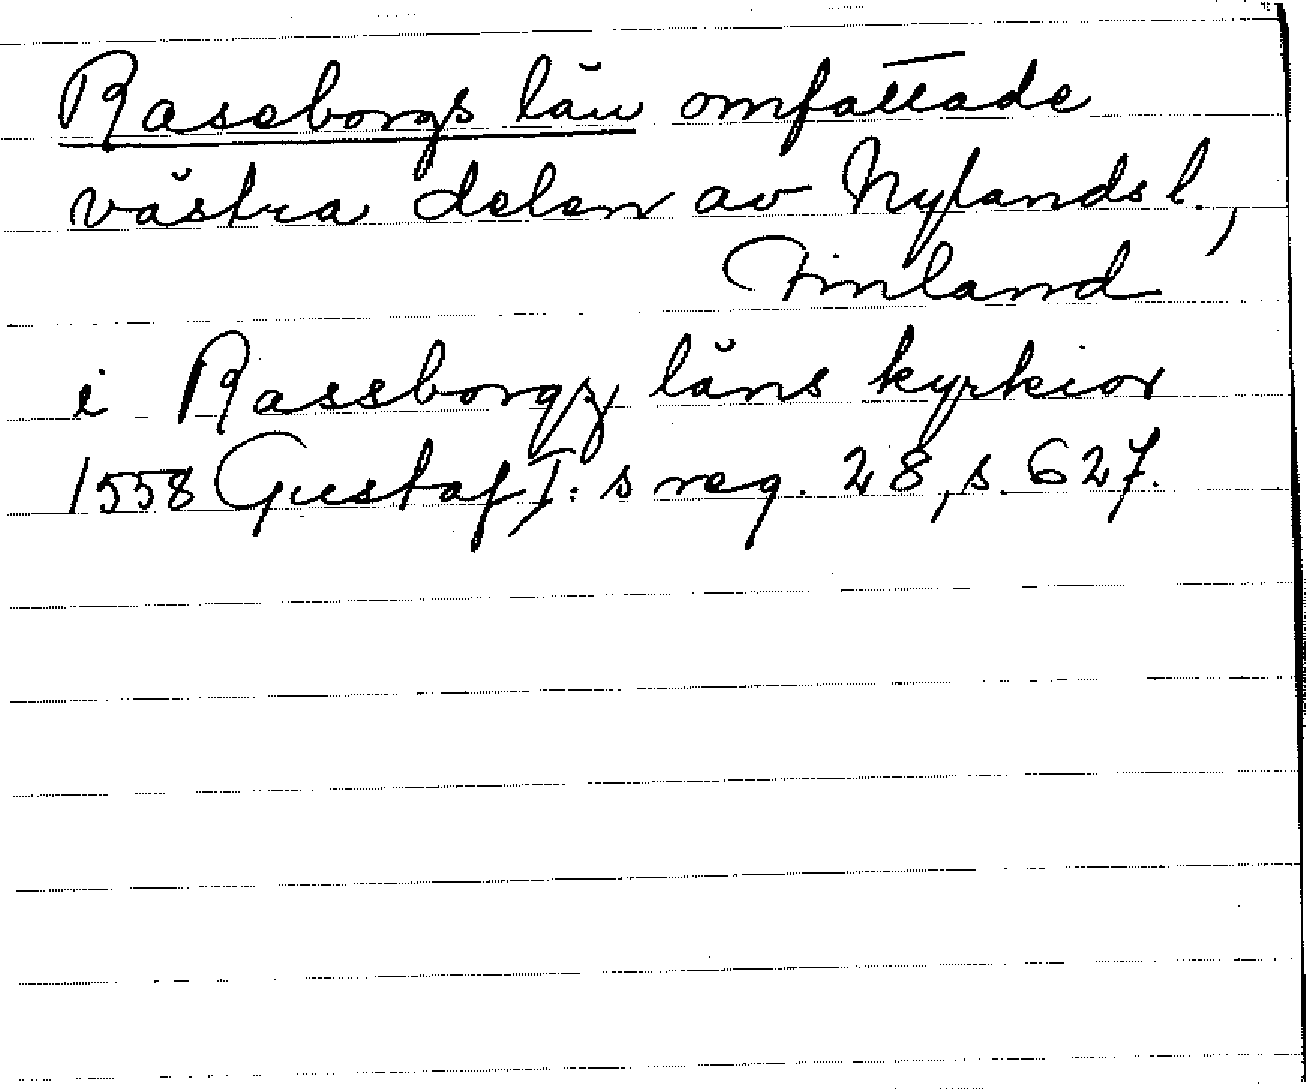 Raseborgs län omfattade
västra delen av Nylands l.,
Finland
i Rassborgz läns kyrkior
1558 Gustaf I:s reg. 28, s. 627.